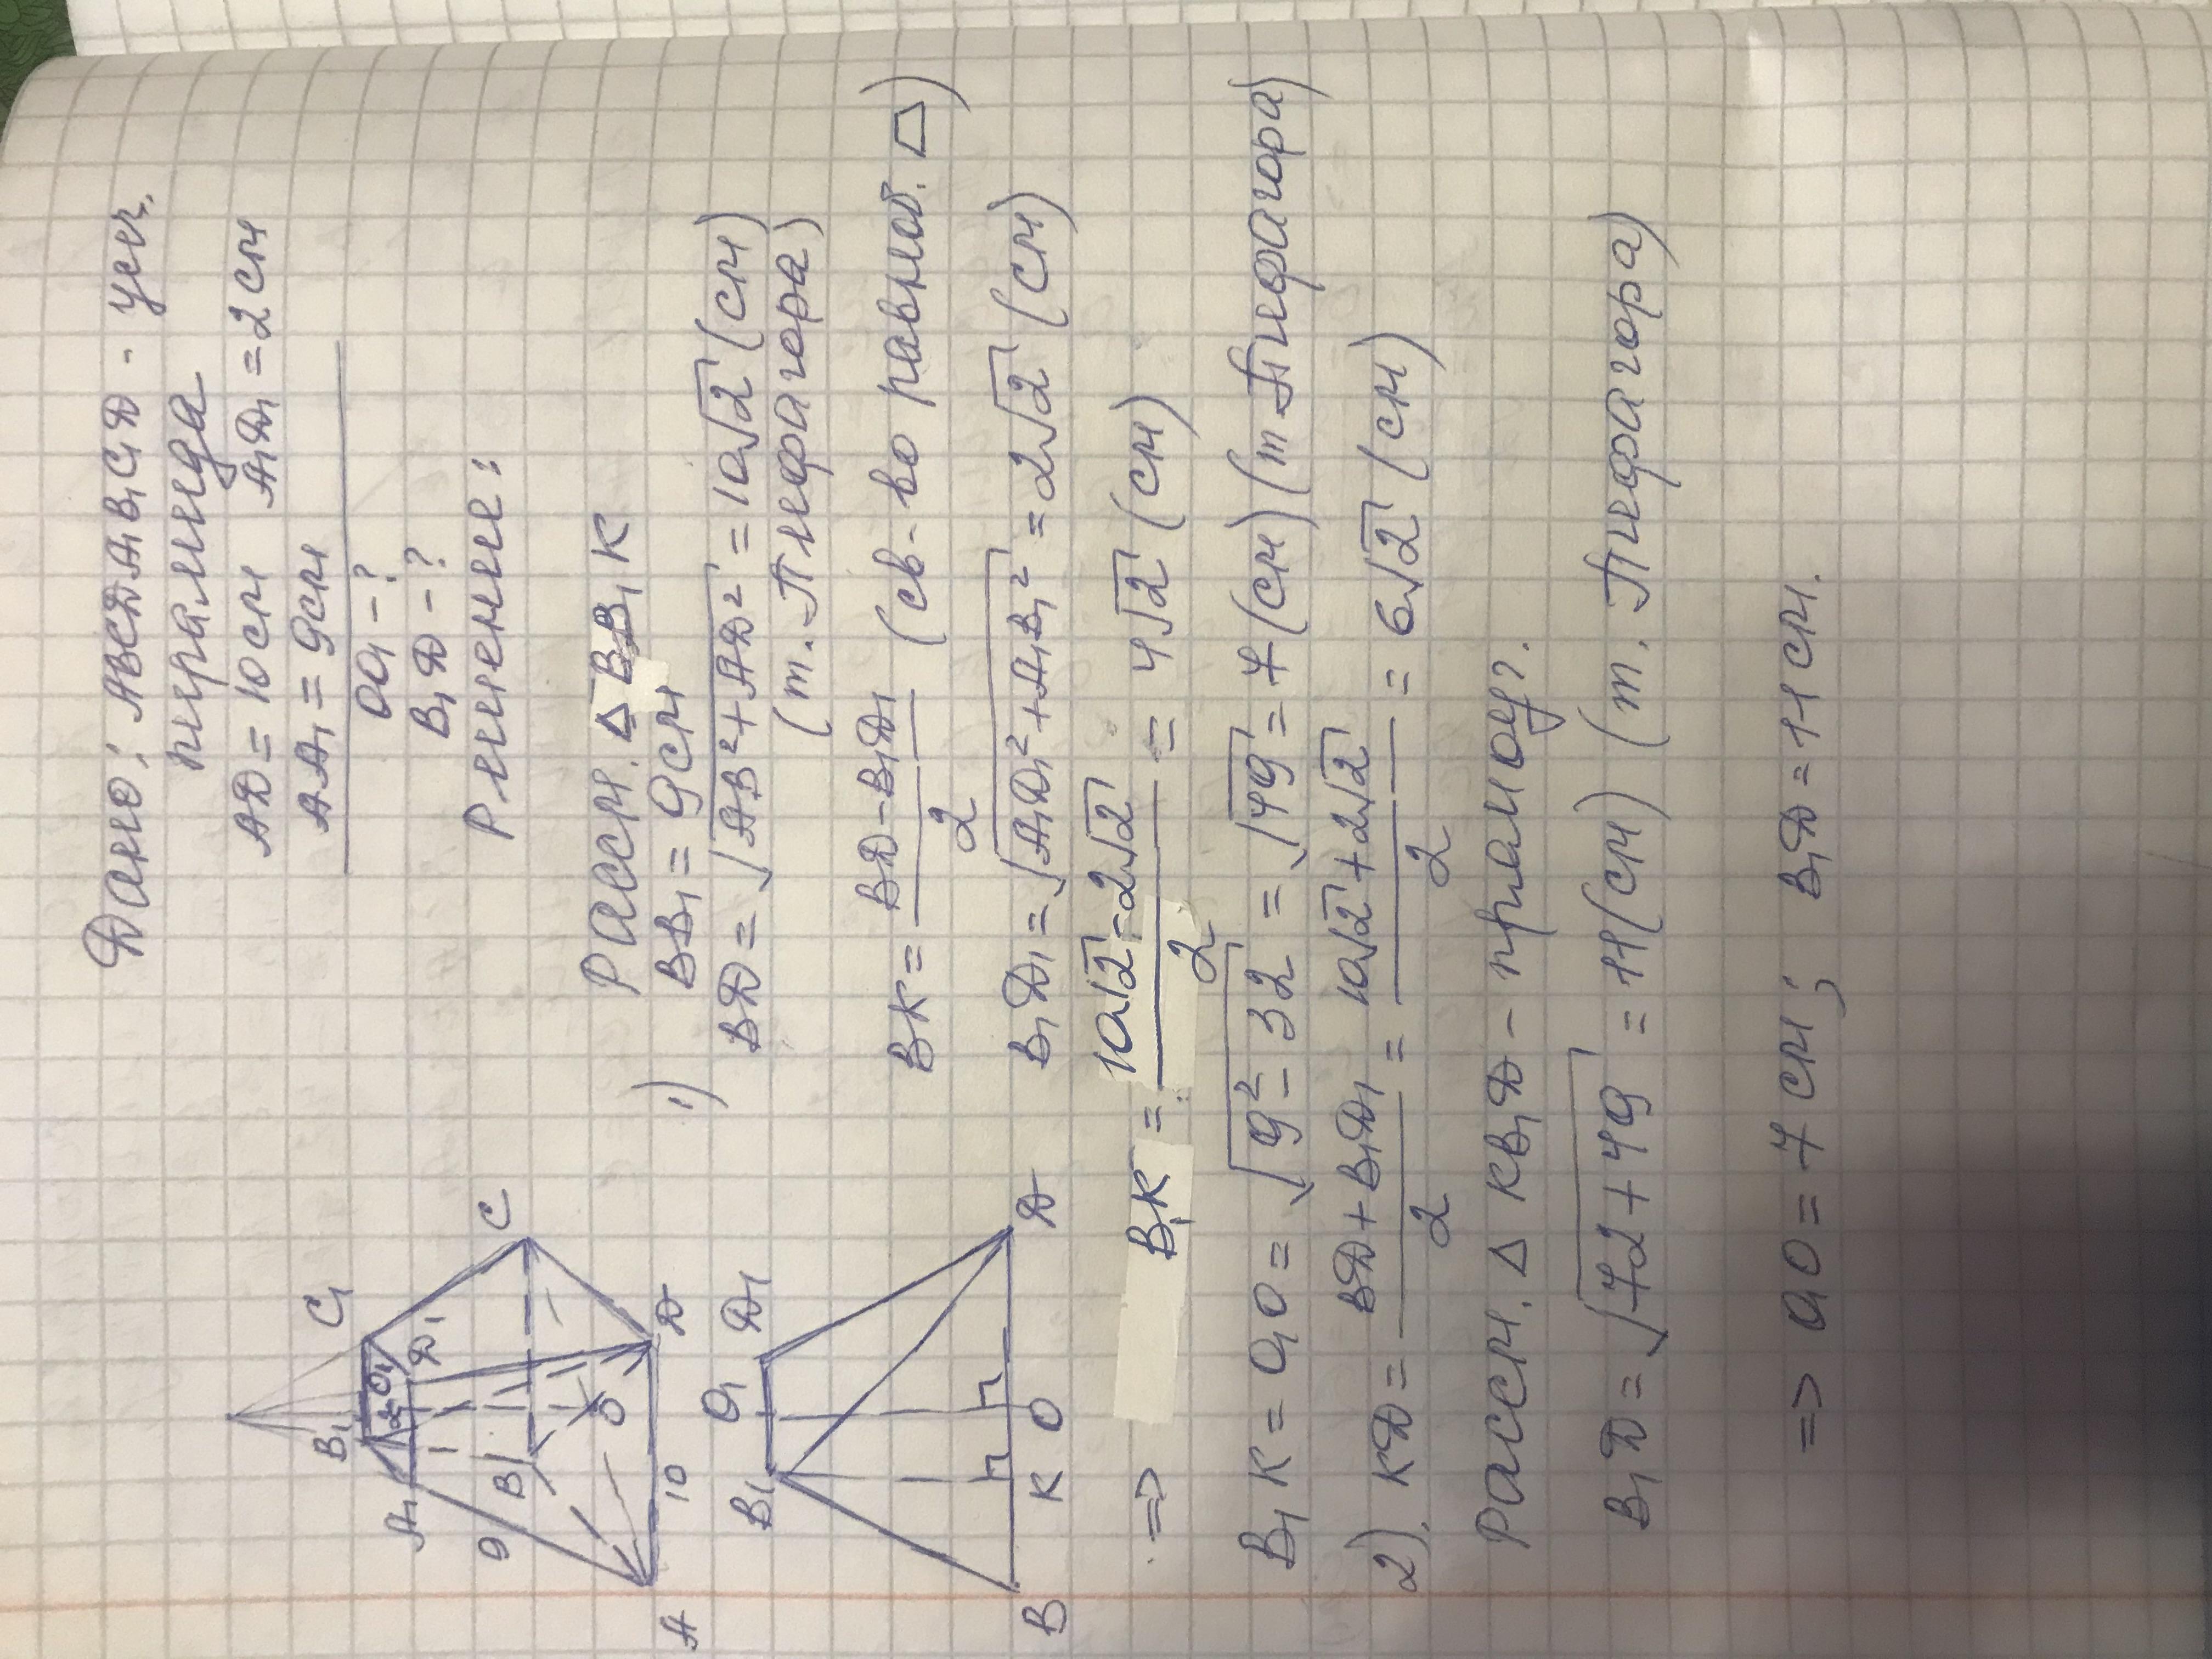 Дано: ABCDA₁B₁C₁D - усеч.
пирамида
AD = 10 см A₁D₁ = 2 см
AA₁ = 9 см
OO₁ - ?
B₁D - ?
Решение:
C₁
B₁
O₁
2
D₁
A₁
C
9
B
O
A
10
D
B₁
O₁
D₁
B
K
O
D
Рассм. Δ BB₁K
1) BB₁ = 9 см
BD = √AB² + AD² = 10√2 (см)
(т. Пифагора)
BK = BD - B₁D₁ / 2 (св-во равноб. ▱)
B₁D₁ = √A₁D₁² + A₁B₁² = 2√2 (см)
=> B₁K = 10√2 - 2√2 / 2 = 4√2 (см)
B₁K = O₁O = √9² - 32 = √49 = 7 (см) (т Пифагора)
2). KD = BD + B₁D₁ / 2 = 10√2 + 2√2 / 2 = 6√2 (см)
Рассм. Δ KB₁D - прямоуг.
B₁D = √72 + 49 = 11 (см) (т. Пифагора)
=> O₁O = 7 см; B₁D = 11 см.